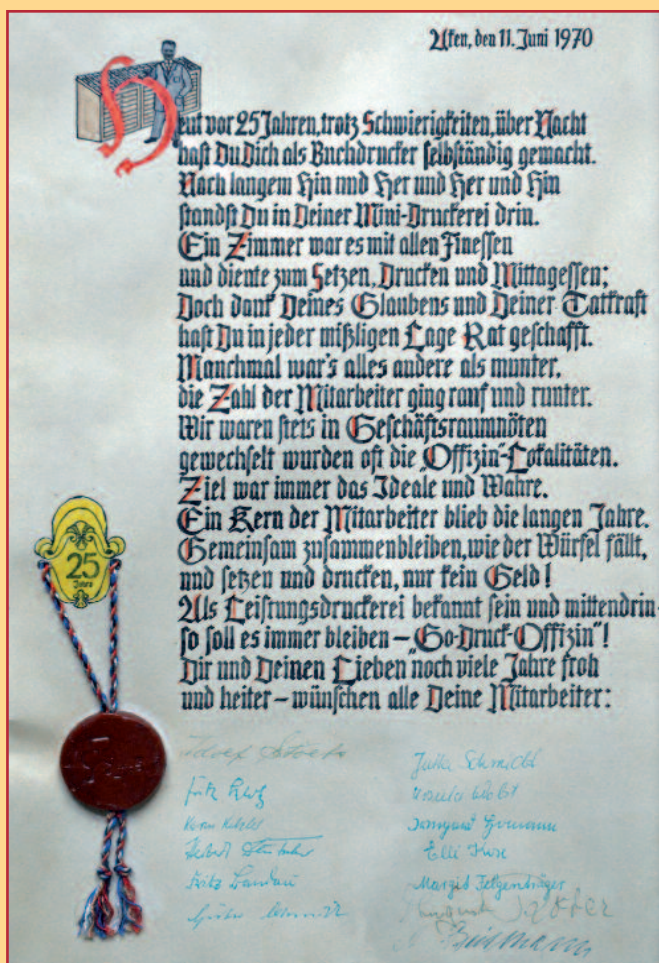 Aken, den 11. Juni 1970
Heut vor 25 Jahren, trotz Schwierigkeiten, über Nacht
hast Du Dich als Buchdrucker selbständig gemacht.
Nach langem Hin und Her und Her und Hin
standst Du in Deiner Mini-Druckerei drin.
Ein Zimmer war es mit allen Finessen
und diente zum Setzen, Drucken und Mittagessen;
Doch dank Deines Glaubens und Deiner Tatkraft
hast Du in jeder mißligen Lage Rat geschafft.
Manchmal war's alles andere als munter.
die Zahl der Mitarbeiter ging rauf und runter.
Wir waren stets in Geschäftsraumnöten
gewechselt wurden oft die „Offizin"-Lokalitäten.
Ziel war immer das Ideale und Wahre.
Ein Kern der Mitarbeiter blieb die langen Jahre.
Gemeinsam zusammenbleiben, wie der Würfel fällt,
und setzen und drucken, nur kein Geld!
Als Leistungsdruckerei bekannt sein und mittendrin-
so soll es immer bleiben – „Go-Druck-Offizin"!
Dir und Deinen Lieben noch viele Jahre froh
und heiter – wünschen alle Deine Mitarbeiter:
25
Jahre
Jutta Schmidt
Fritz
Ursula
Herbert
Elli
Fritz Landau
Margid Felgenträger